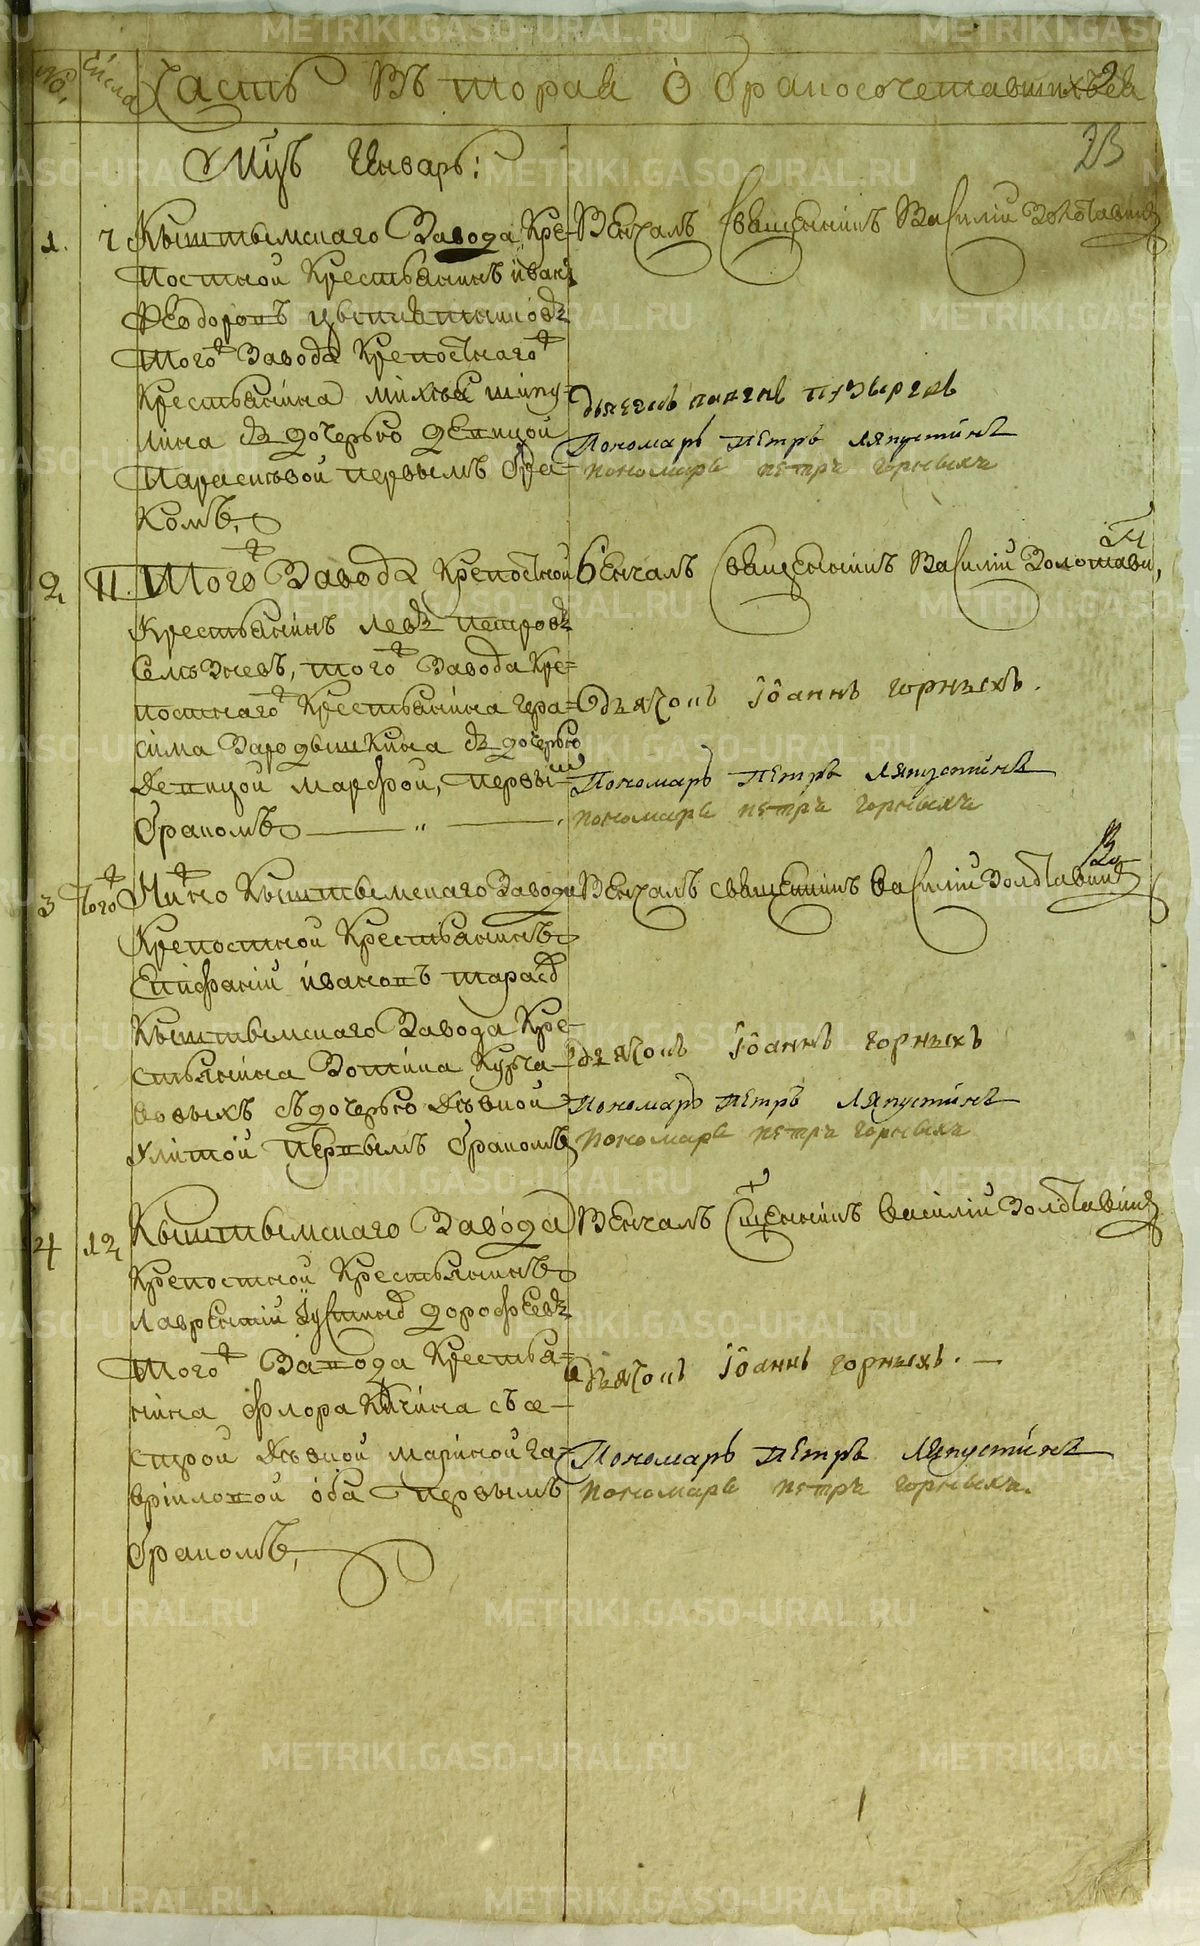 №. Числа Часть Вторая О бракосочетавшихся
23
Мцъ Генварь:
1. 7 Кыштымскаго Завода Кре-
постной Крестьянинъ Иванъ
Феодоровъ
того Завода Крепостнаго
Крестьянина Михея Шипу-
лина з дочерью девицой
Параскевой первымъ бра-
комъ,
Венчалъ Священникъ Василий Золотавинъ
Пономарь Петръ Ляпустинъ
пономарь петръ горныхъ
2, 11. Того Завода Крепостной
Крестьянинъ Левъ Петровъ
Селезневъ, того Завода Кре=
постнаго Крестьянина Гера=
сима Зародышкина з дочерью
девицой Марфой, первым
бракомъ
Венчалъ Священникъ Василий Золотавин,
Дьяконъ Иоаннъ горныхъ.
Пономарь Петръ Ляпустинъ
пономарь петръ горныхъ
3 Того Числа Кыштымскаго Завода
Крепостной Крестьянинъ
Епифаний Ивановъ Тарасов
Кыштымскаго Завода Кре-
стьянина Зотика Курча-
вовыхъ съ дочерью девкой
Улитой первымъ бракомъ
Венчалъ священникъ Василий Золотавинъ
дьяконъ Иоаннъ горныхъ
Пономарь Петръ Ляпустинъ
пономарь петръ горныхъ
4 12, Кыштымскаго Завода
Крепостной Крестьянинъ
Лаврентий Иустинов Дорофеевъ
того Завода Крестья=
нина Флора Кичина съ се-
строй девкой Мариной Га-
вриловой оба первымъ
бракомъ,
Венчалъ Сщенникъ Василий Золотавинъ
Дьяконъ Иоаннъ горныхъ. —
Пономарь Петръ Ляпустинъ
пономарь петръ горныхъ.
METRIKI.GASO-URAL.RU